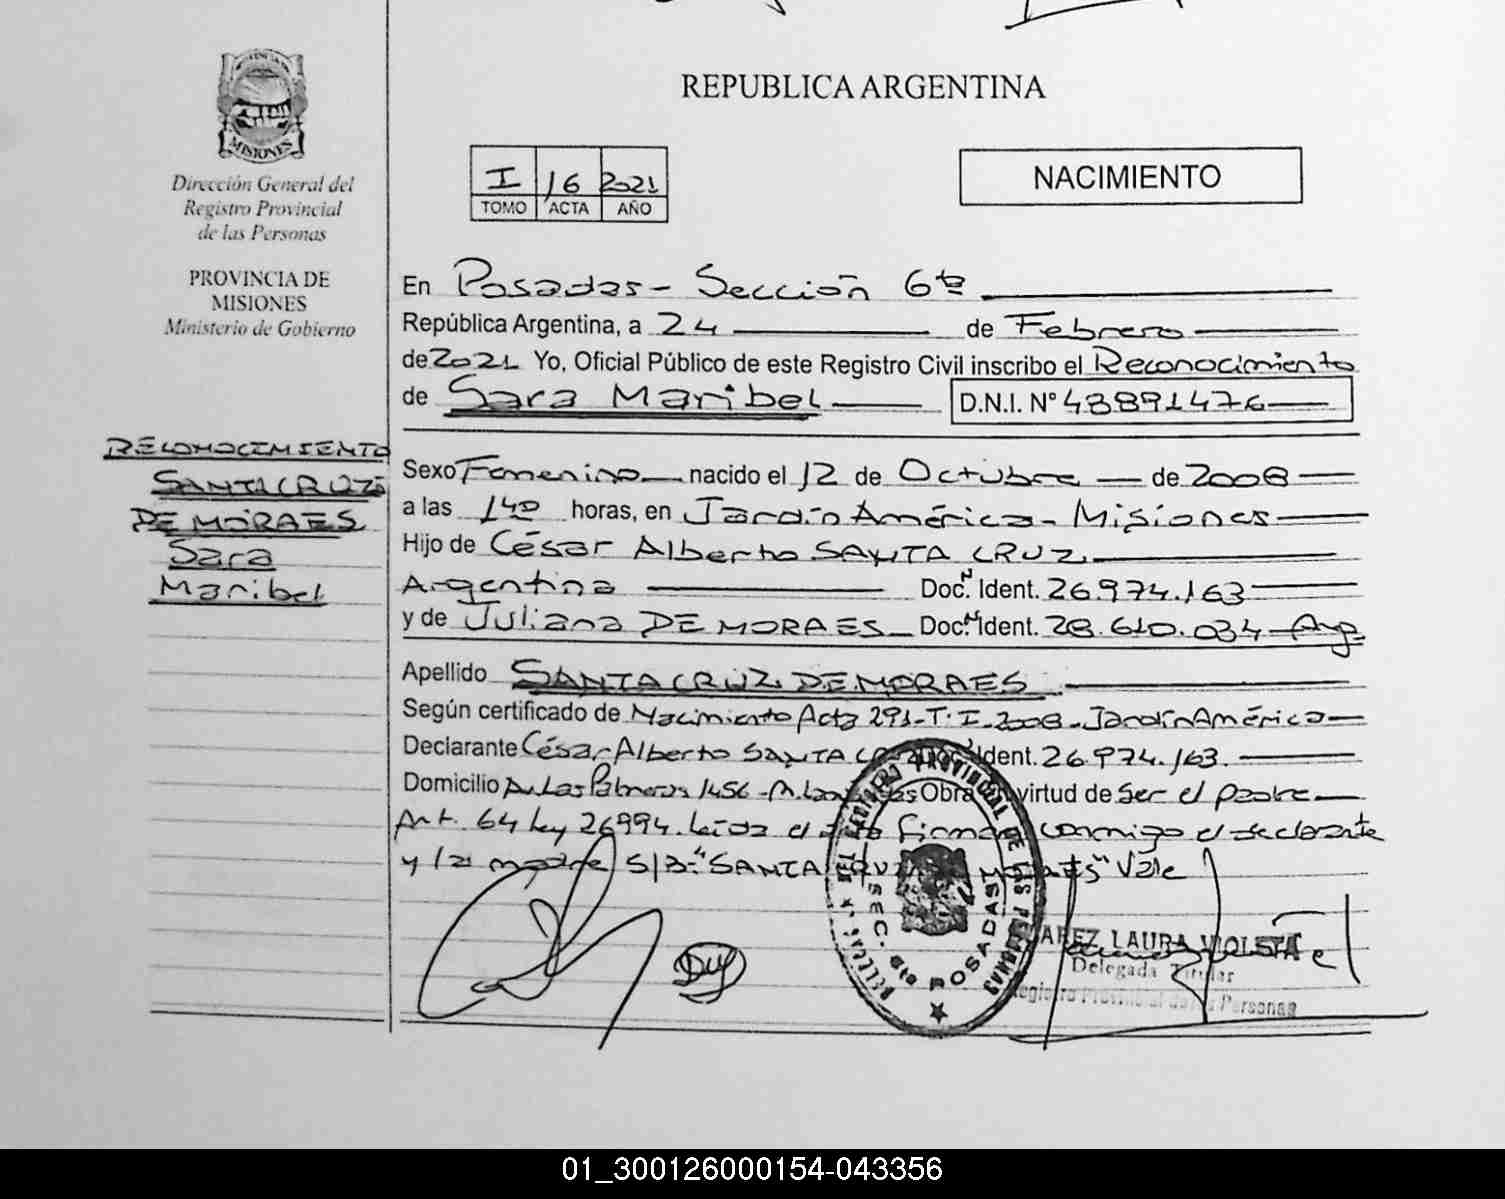 PROVINCIA DE
MISIONES
Dirección General del
Registro Provincial
de las Personas
PROVINCIA DE
MISIONES
Ministerio de Gobierno
REPUBLICA ARGENTINA
I 16 2021
TOMO ACTA AÑO
NACIMIENTO
En Posadas - Sección 6ta
República Argentina, a 24 de Febrero
de 2021 Yo, Oficial Público de este Registro Civil inscribo el Reconocimiento
de Sara Maribel D.N.I. N° 48891476
RECONOCIMIENTO
SANTA CRUZ
DE MORAES
Sara
Maribel
Sexo Femenino nacido el 12 de Octubre de 2008
a las 140 horas, en Jardín América - Misiones
Hijo de César Alberto SANTA CRUZ
Argentina Doc. N Ident. 26.974.163
y de Juliana DE MORAES Doc. N Ident. 28.610.034 Arg.
Apellido SANTA CRUZ DE MORAES
Según certificado de Nacimiento Acta 291-T: I-2008-Jardín América
Declarante César Alberto SANTA Ident. 26.974.163.
Domicilio Av. Las Palmeras 1456 - Obra virtud de ser el padre
Art. 64 Ley 26994. Leída el firman conmigo el declarante
y la madre S/B: "SANTA MORAES" Vale
DELEGAC. DEL REGISTRO PROVINCIAL DE LAS PERSONAS
SEC. 6ta POSADAS
LAURA VIOLETA
Delegada Titular
Registro Provincial de las Personas
01_300126000154-043356